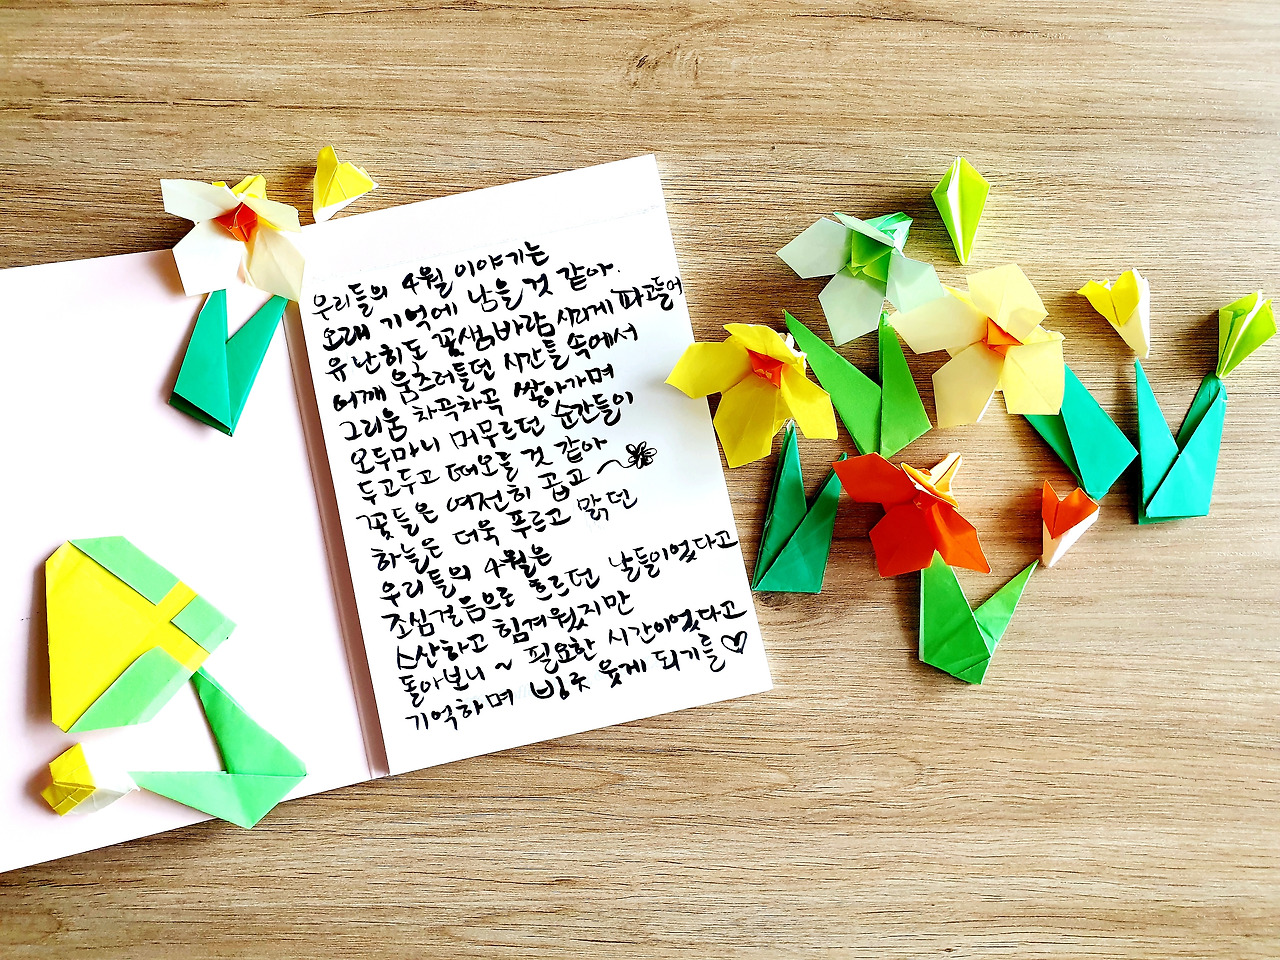 우리들의 4월 이야기는
오래 기억에 남을 것 같아.
유난히도 꽃샘바람 시리게 파고들어
어깨 움츠러들던 시간들 속에서
그리움 차곡차곡 쌓아가며
오두마니 머무르던 순간들이
두고두고 떠오를 것 같아
꽃들은 여전히 곱고
하늘은 더욱 푸르고 맑던
우리들의 4월은
조심걸음으로 흐르던 날들이었다고
스산하고 힘겨웠지만
돌아보니 ~ 필요한 시간이었다고
기억하며 빙긋 웃게 되기를 ♡